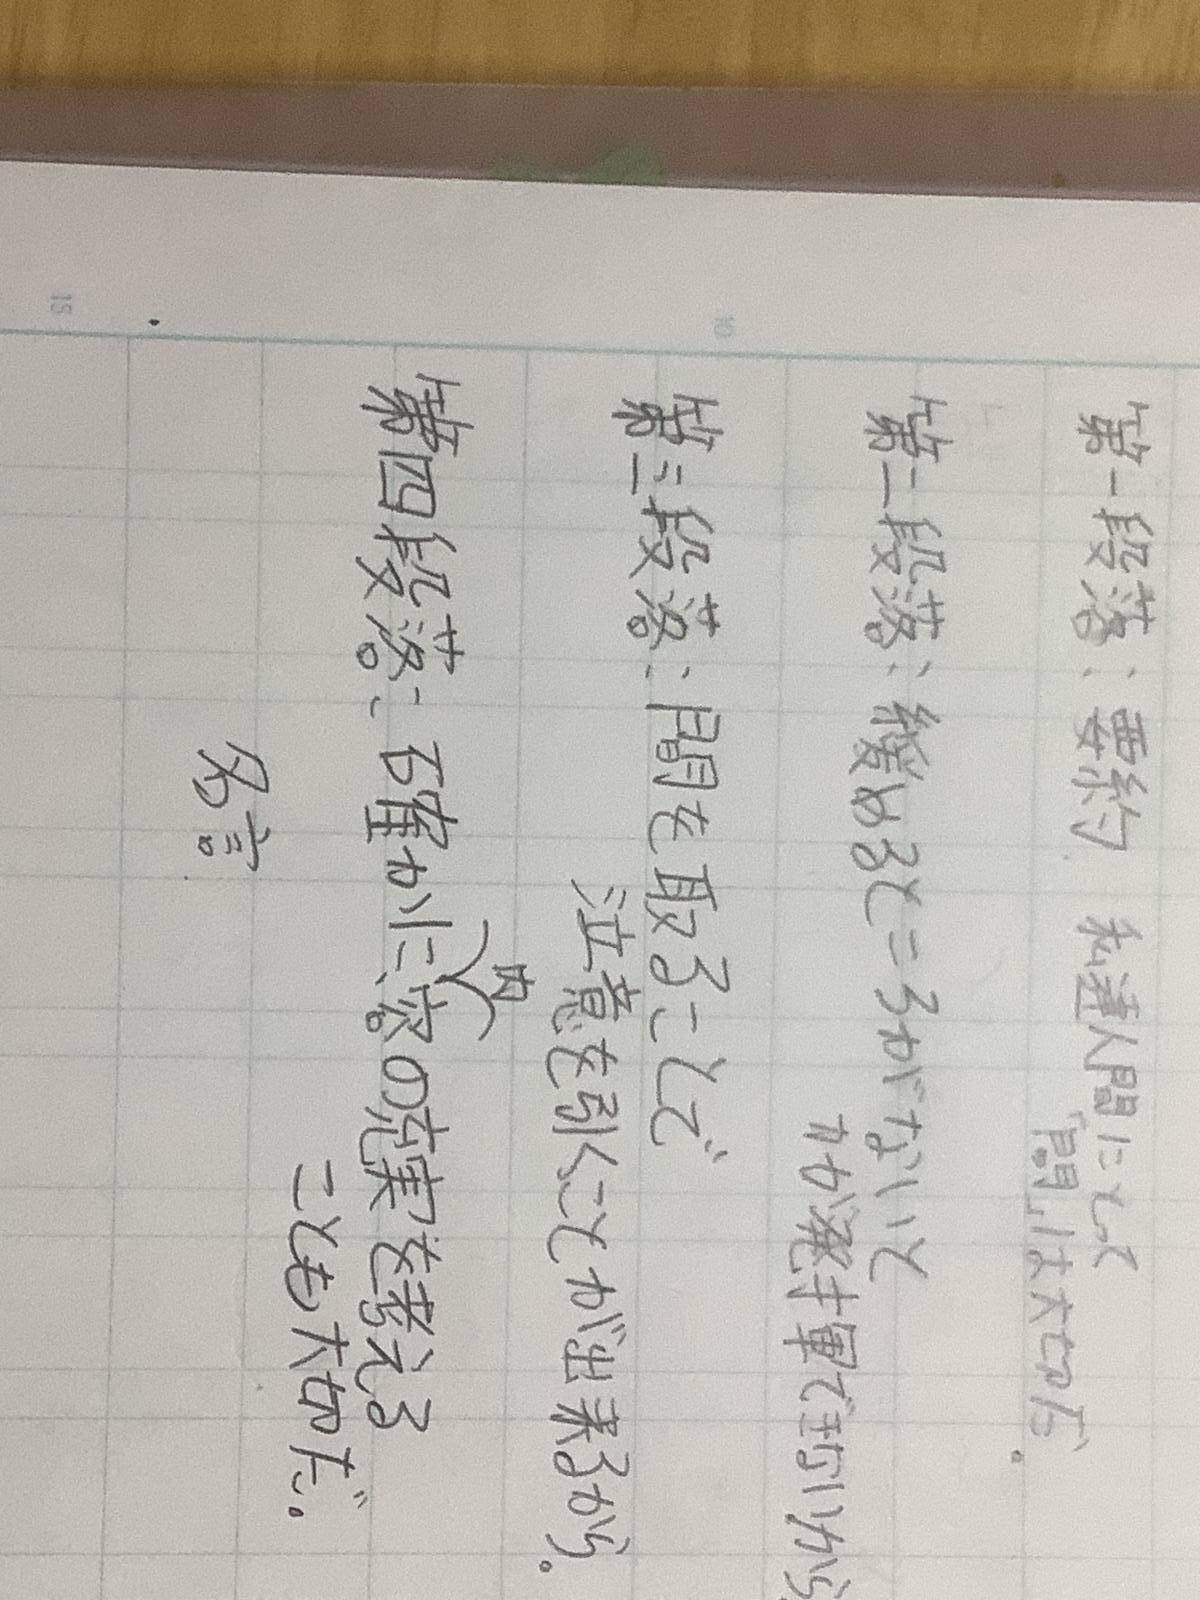 10
15
第一段落：要約 私達人間にとって
「間」は大切だ。
第二段落：緩めるところがないと
力が発揮できないから
第三段落：間を取ることで
注意を引くことが出来るから。
第四段落：確かに、内容の充実を考える
ことも大切だ。
名言